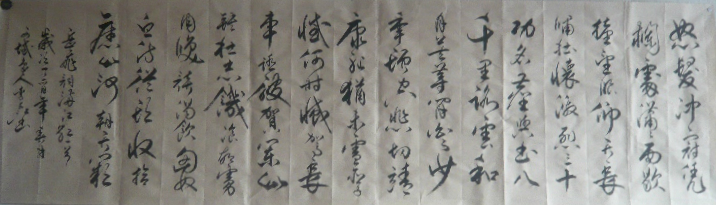 怒髮冲冠凭
欄處瀟雨歇
抬望眼仰天長
嘯壮懷激烈三十
功名塵與土八
千里路雲和
月莫等閒白了少
年頭空悲切靖
康耻猶未雪臣子
恨何時滅駕長
車踏破賀蘭山
缺壮志饑餐胡虜
肉笑談渴飲匈奴
血待從頭收拾
舊山河朝天闕
岳飛詞滿江紅
歲次年